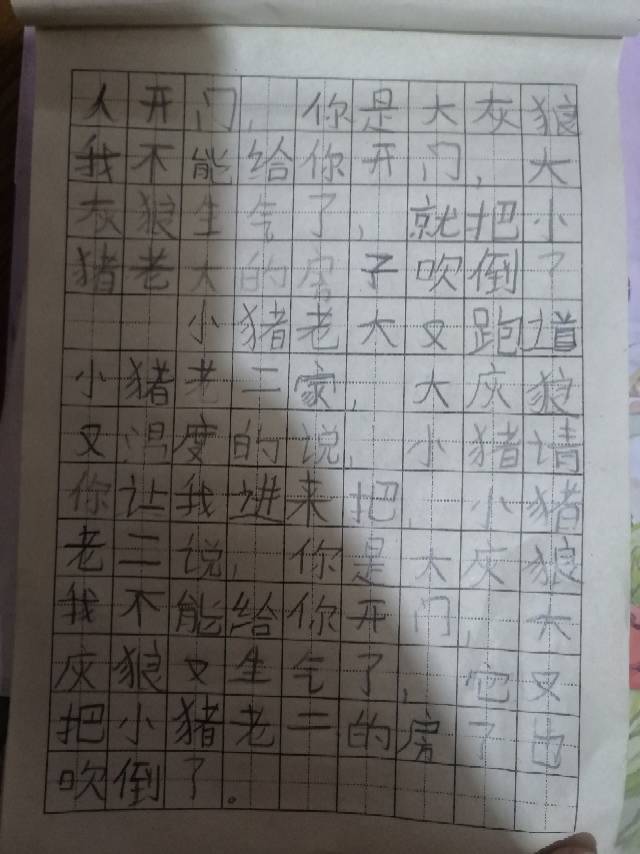 人开门,你是大灰狼
我不能给你开门,大
灰狼生气了,就把小
猪老大的房子吹倒了
小猪老大又跑道
小猪老二家,大灰狼
又温度的说,小猪请
你让我进来把,小猪
老二说,你是大灰狼
我不能给你开门,大
灰狼又生气了,它又
把小猪老二的房子也
吹倒了。